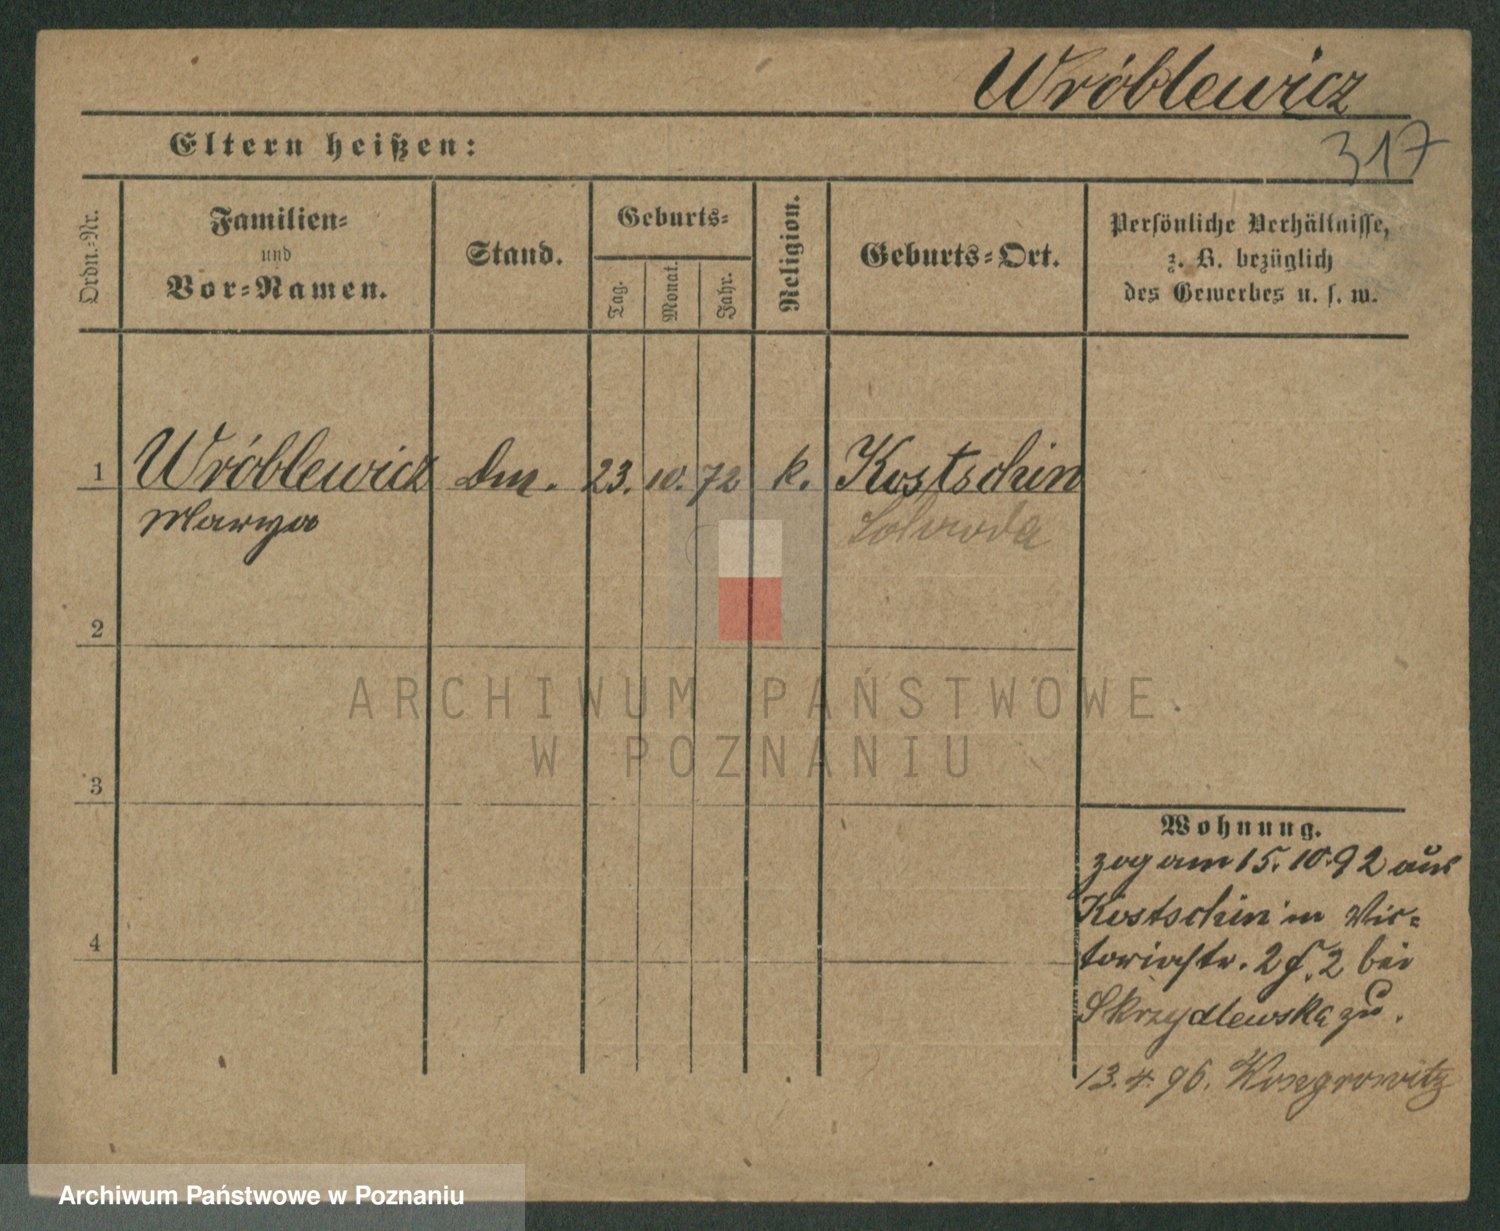 Wróblewicz
317
Eltern heißen:
Ordn.-Nr.
Familien-
und
Vor-Namen.
Stand.
Geburts-
Tag.
Monat.
Jahr.
Religion.
Geburts-Ort.
Persönliche Verhältnisse,
z. B. bezüglich
des Gewerbes u. s. w.
1 Wróblewicz Dm. 23. 10. 72 k. Kostschin
Marya
2
ARCHIWUM PAŃSTWOWE
W POZNANIU
3
Wohnung.
zog am 15.10.92 aus
Kostschin in Vic-
4
toriastr. 2 f. 2 bei
Skrzydlewska zu.
13.4.96. Wongrowitz
Archiwum Państwowe w Poznaniu